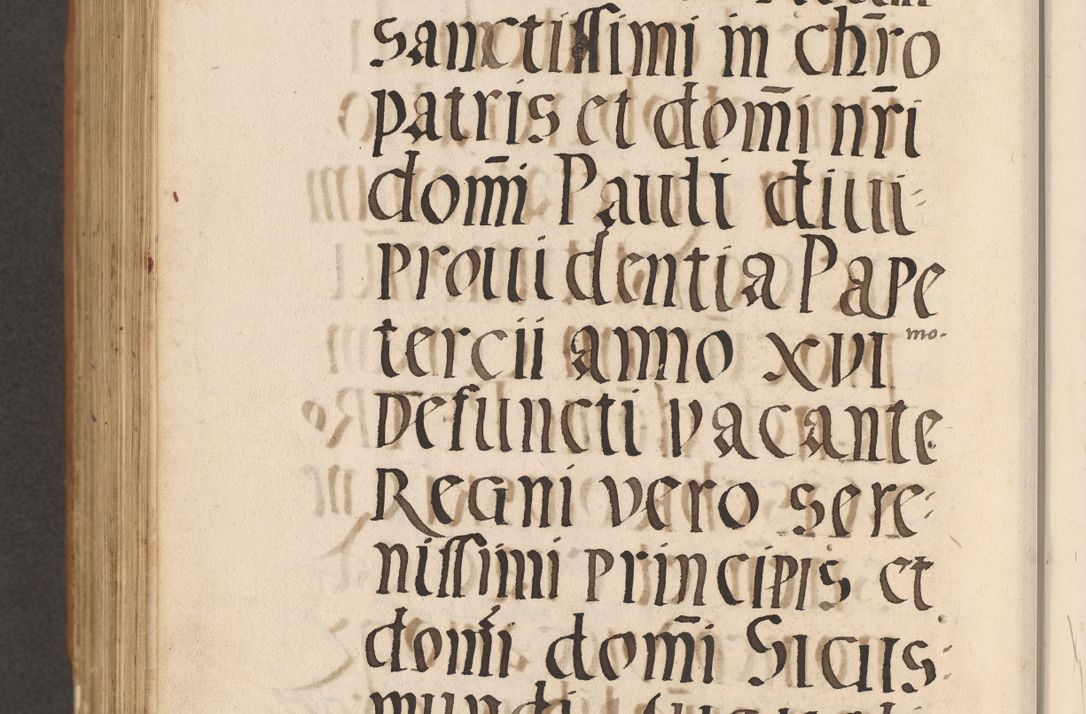 sanctissimi in chr̄o
patris et dom̄i nr̄i
dom̄i Pauli diui-
prouidentia Pape
tercii anno XVI mo.
Defuncti vacante
Regni vero sere-
nissimi principis et
dom̄i dom̄i Sigis-
mundi